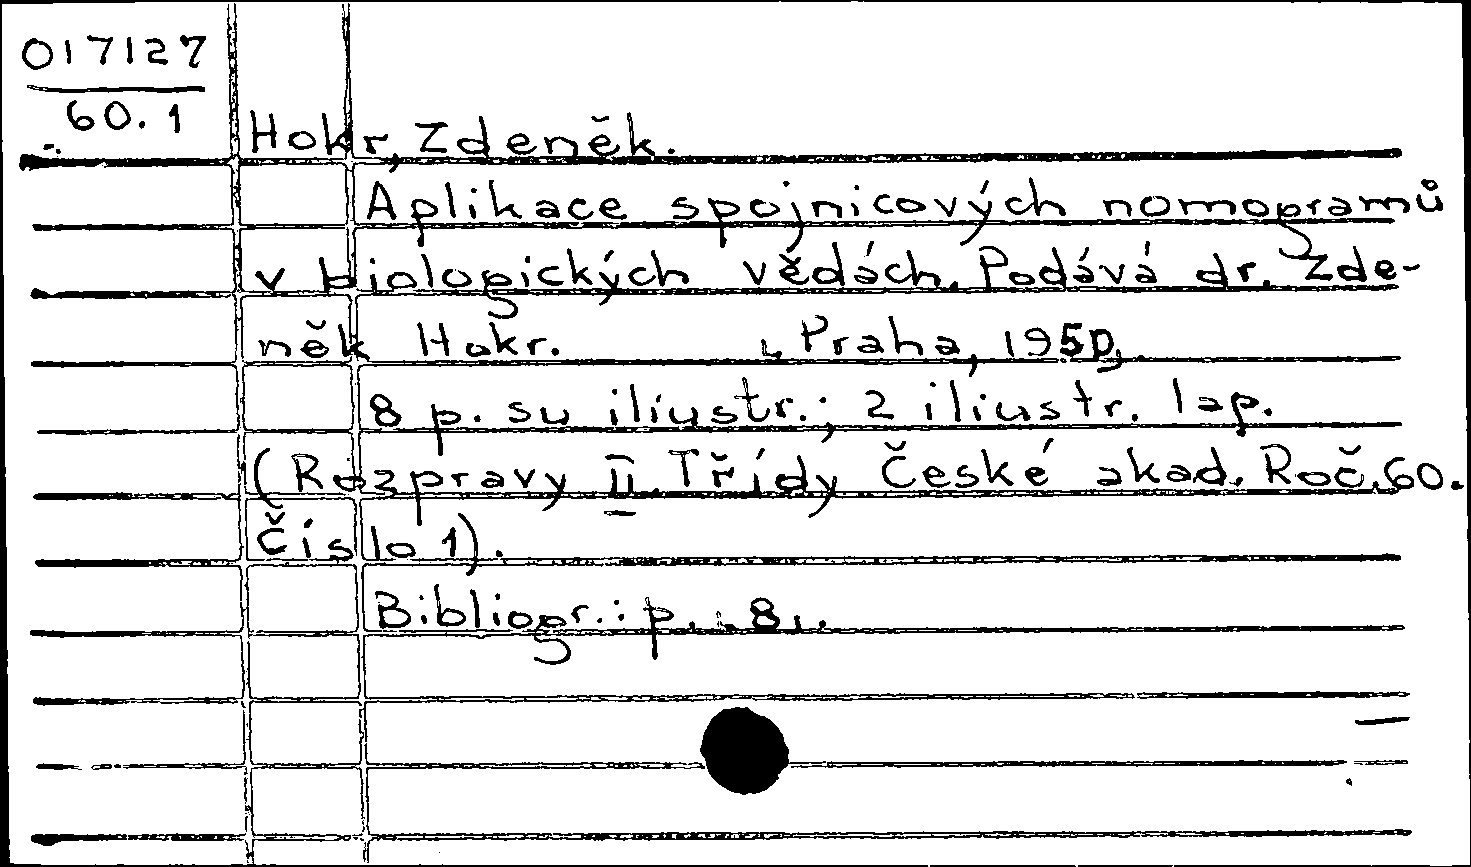 017127
60.1
Hokr, Zdeněk.
Aplikace spojnicových nomogramů
v biologických vědách. Podává dr. Zde-
něk Hokr. Praha, 1950,
8 p. su iliustr.; 2 iliustr. lap.
(Rozpravy II. Třídy České akad. Roč. 60.
Číslo 1).
Bibliogr.: p. 8.